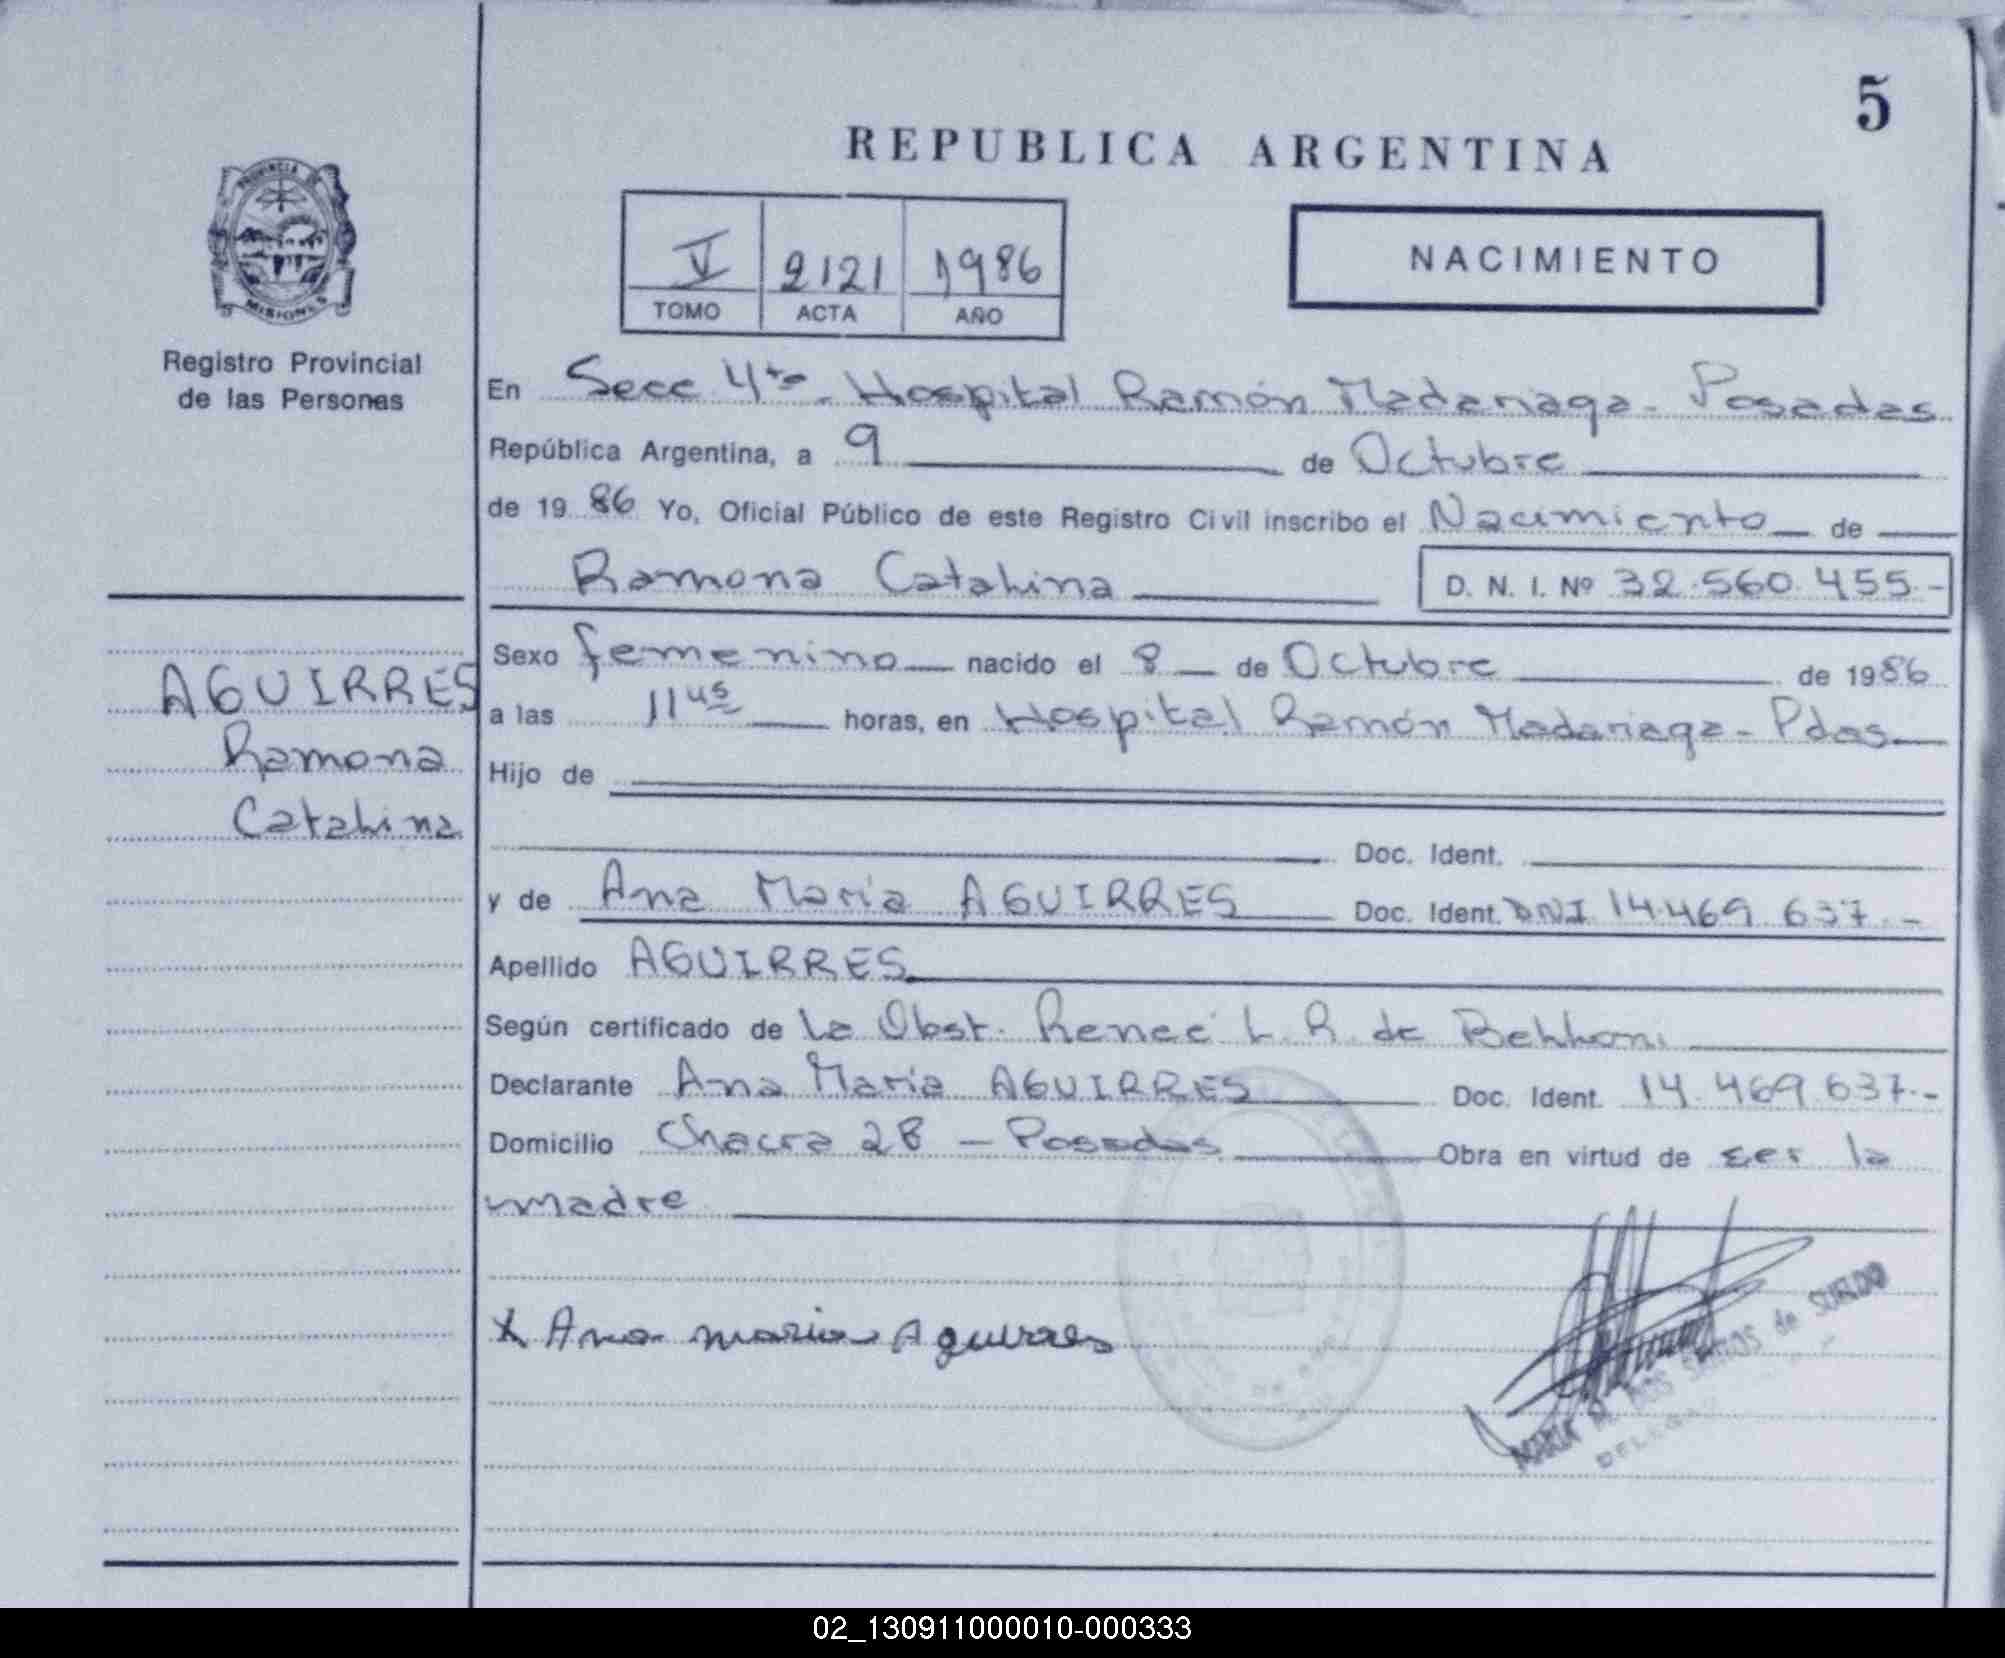 5
REPUBLICA ARGENTINA
PROVINCIA DE
MISIONES
Registro Provincial
de las Personas
V 2121 1986
TOMO ACTA AÑO
NACIMIENTO
En Secc 4ta. Hospital Ramón Madariaga - Posadas
República Argentina, a 9 de Octubre
de 1986 Yo, Oficial Público de este Registro Civil inscribo el Nacimiento de
Ramona Catalina D. N. I. Nº 32.560.455.-
AGUIRRES
Ramona
Catalina
Sexo femenino nacido el 8 de Octubre de 1986
a las 11 45 horas, en Hospital Ramón Madariaga - Pdas
Hijo de
Doc. Ident.
y de Ana María AGUIRRES Doc. Ident. DNI 14.469.637.-
Apellido AGUIRRES
Según certificado de la Obst. Reneé L. R. de
Declarante Ana María AGUIRRES Doc. Ident. 14.469.637.-
Domicilio Chacra 28 - Posadas Obra en virtud de ser la
madre
x Ana maria Aguirres
MARIA DOS SANTOS de SUELDO
02_130911000010-000333